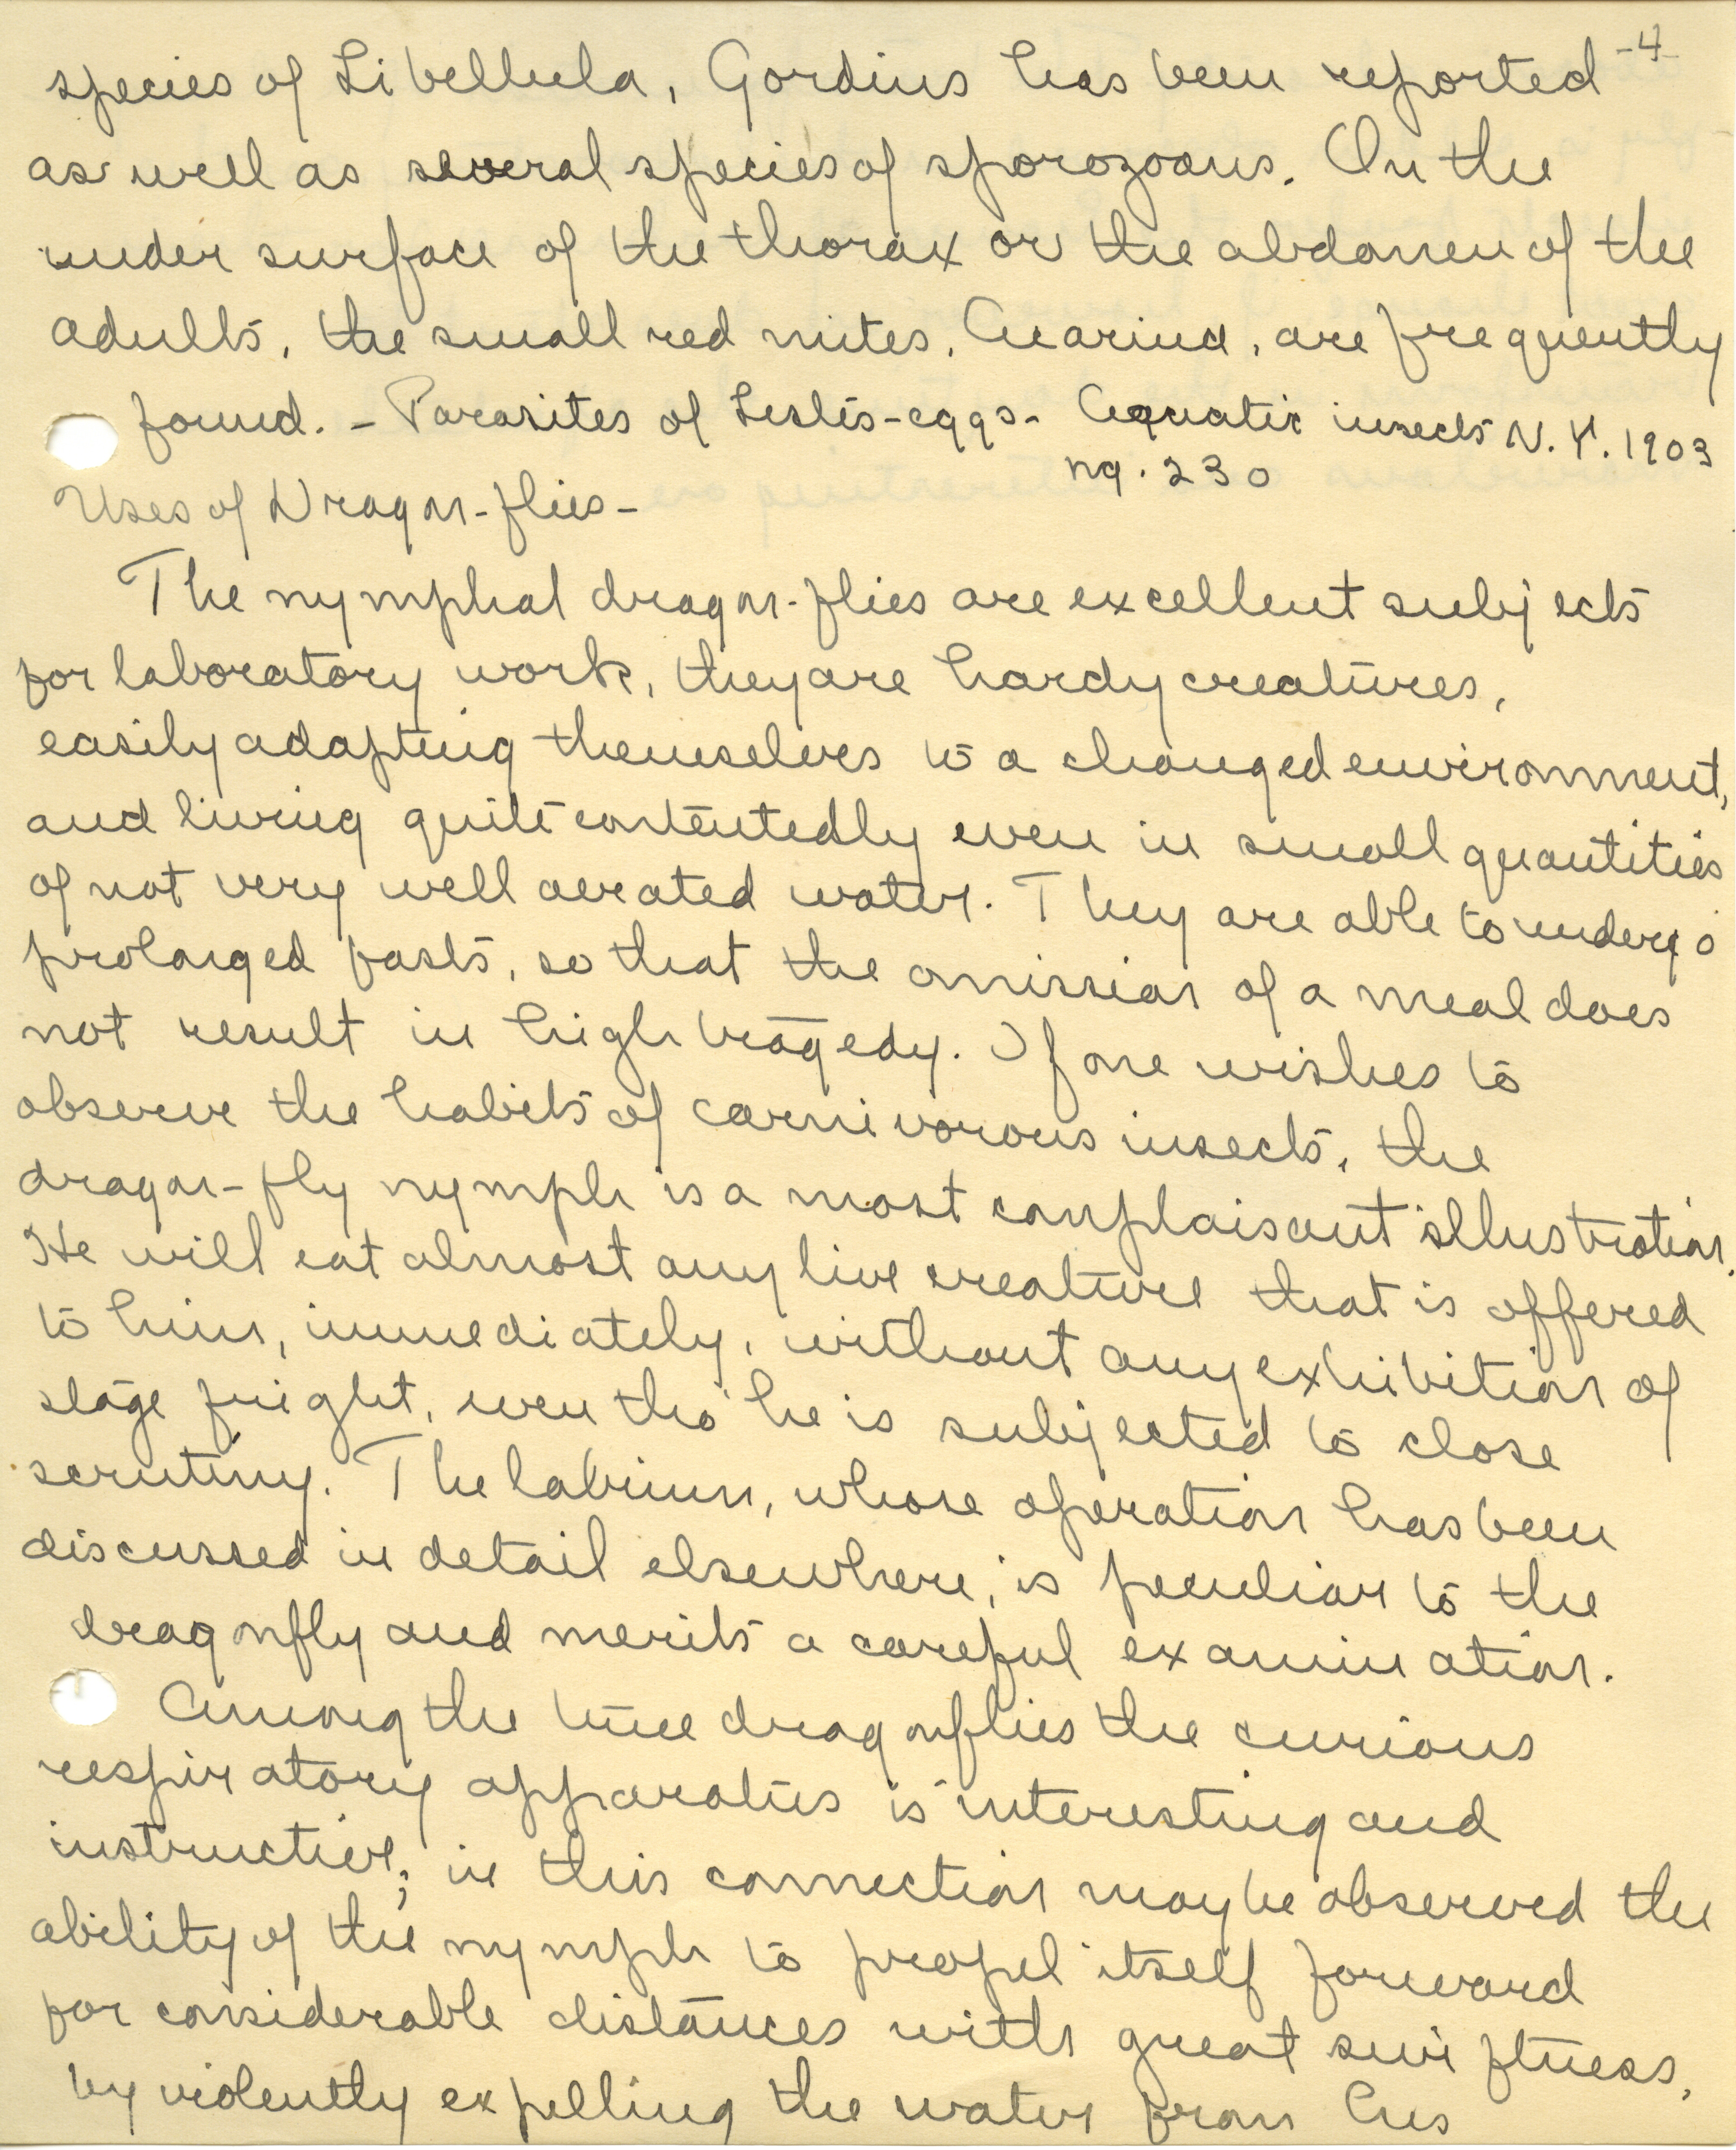 -4-
species of Libellula, Gordius has been reported
as well as several species of sporozoans. On the
under surface of the thorax or the abdomen of the
adults, the small red mites, Acarina, are frequently
found. - Parasites of Lestes-eggs- Aquatic insects N.Y. 1903
pg. 230
Uses of Dragon-flies-
The nymphal dragon-flies are excellent subjects
for laboratory work, they are hardy creatures,
easily adapting themselves to a changed environment,
and living quite contentedly even in small quantities
of not very well aerated water. They are able to undergo
prolonged fasts, so that the omission of a meal does
not result in high tragedy. If one wishes to
observe the habits of carnivorous insects, the
dragon-fly nymph is a most complaisant illustration.
He will eat almost any live creature that is offered
to him, immediately, without any exhibition of
stage fright, even tho' he is subjected to close
scrutiny. The labium, whose operation has been
discussed in detail elsewhere, is peculiar to the
dragonfly and merits a careful examination.
Among the true dragonflies the curious
respiratory apparatus is interesting and
instructive; in this connection may be observed the
ability of the nymph to propel itself forward
for considerable distances with great swiftness,
by violently expelling the water from his